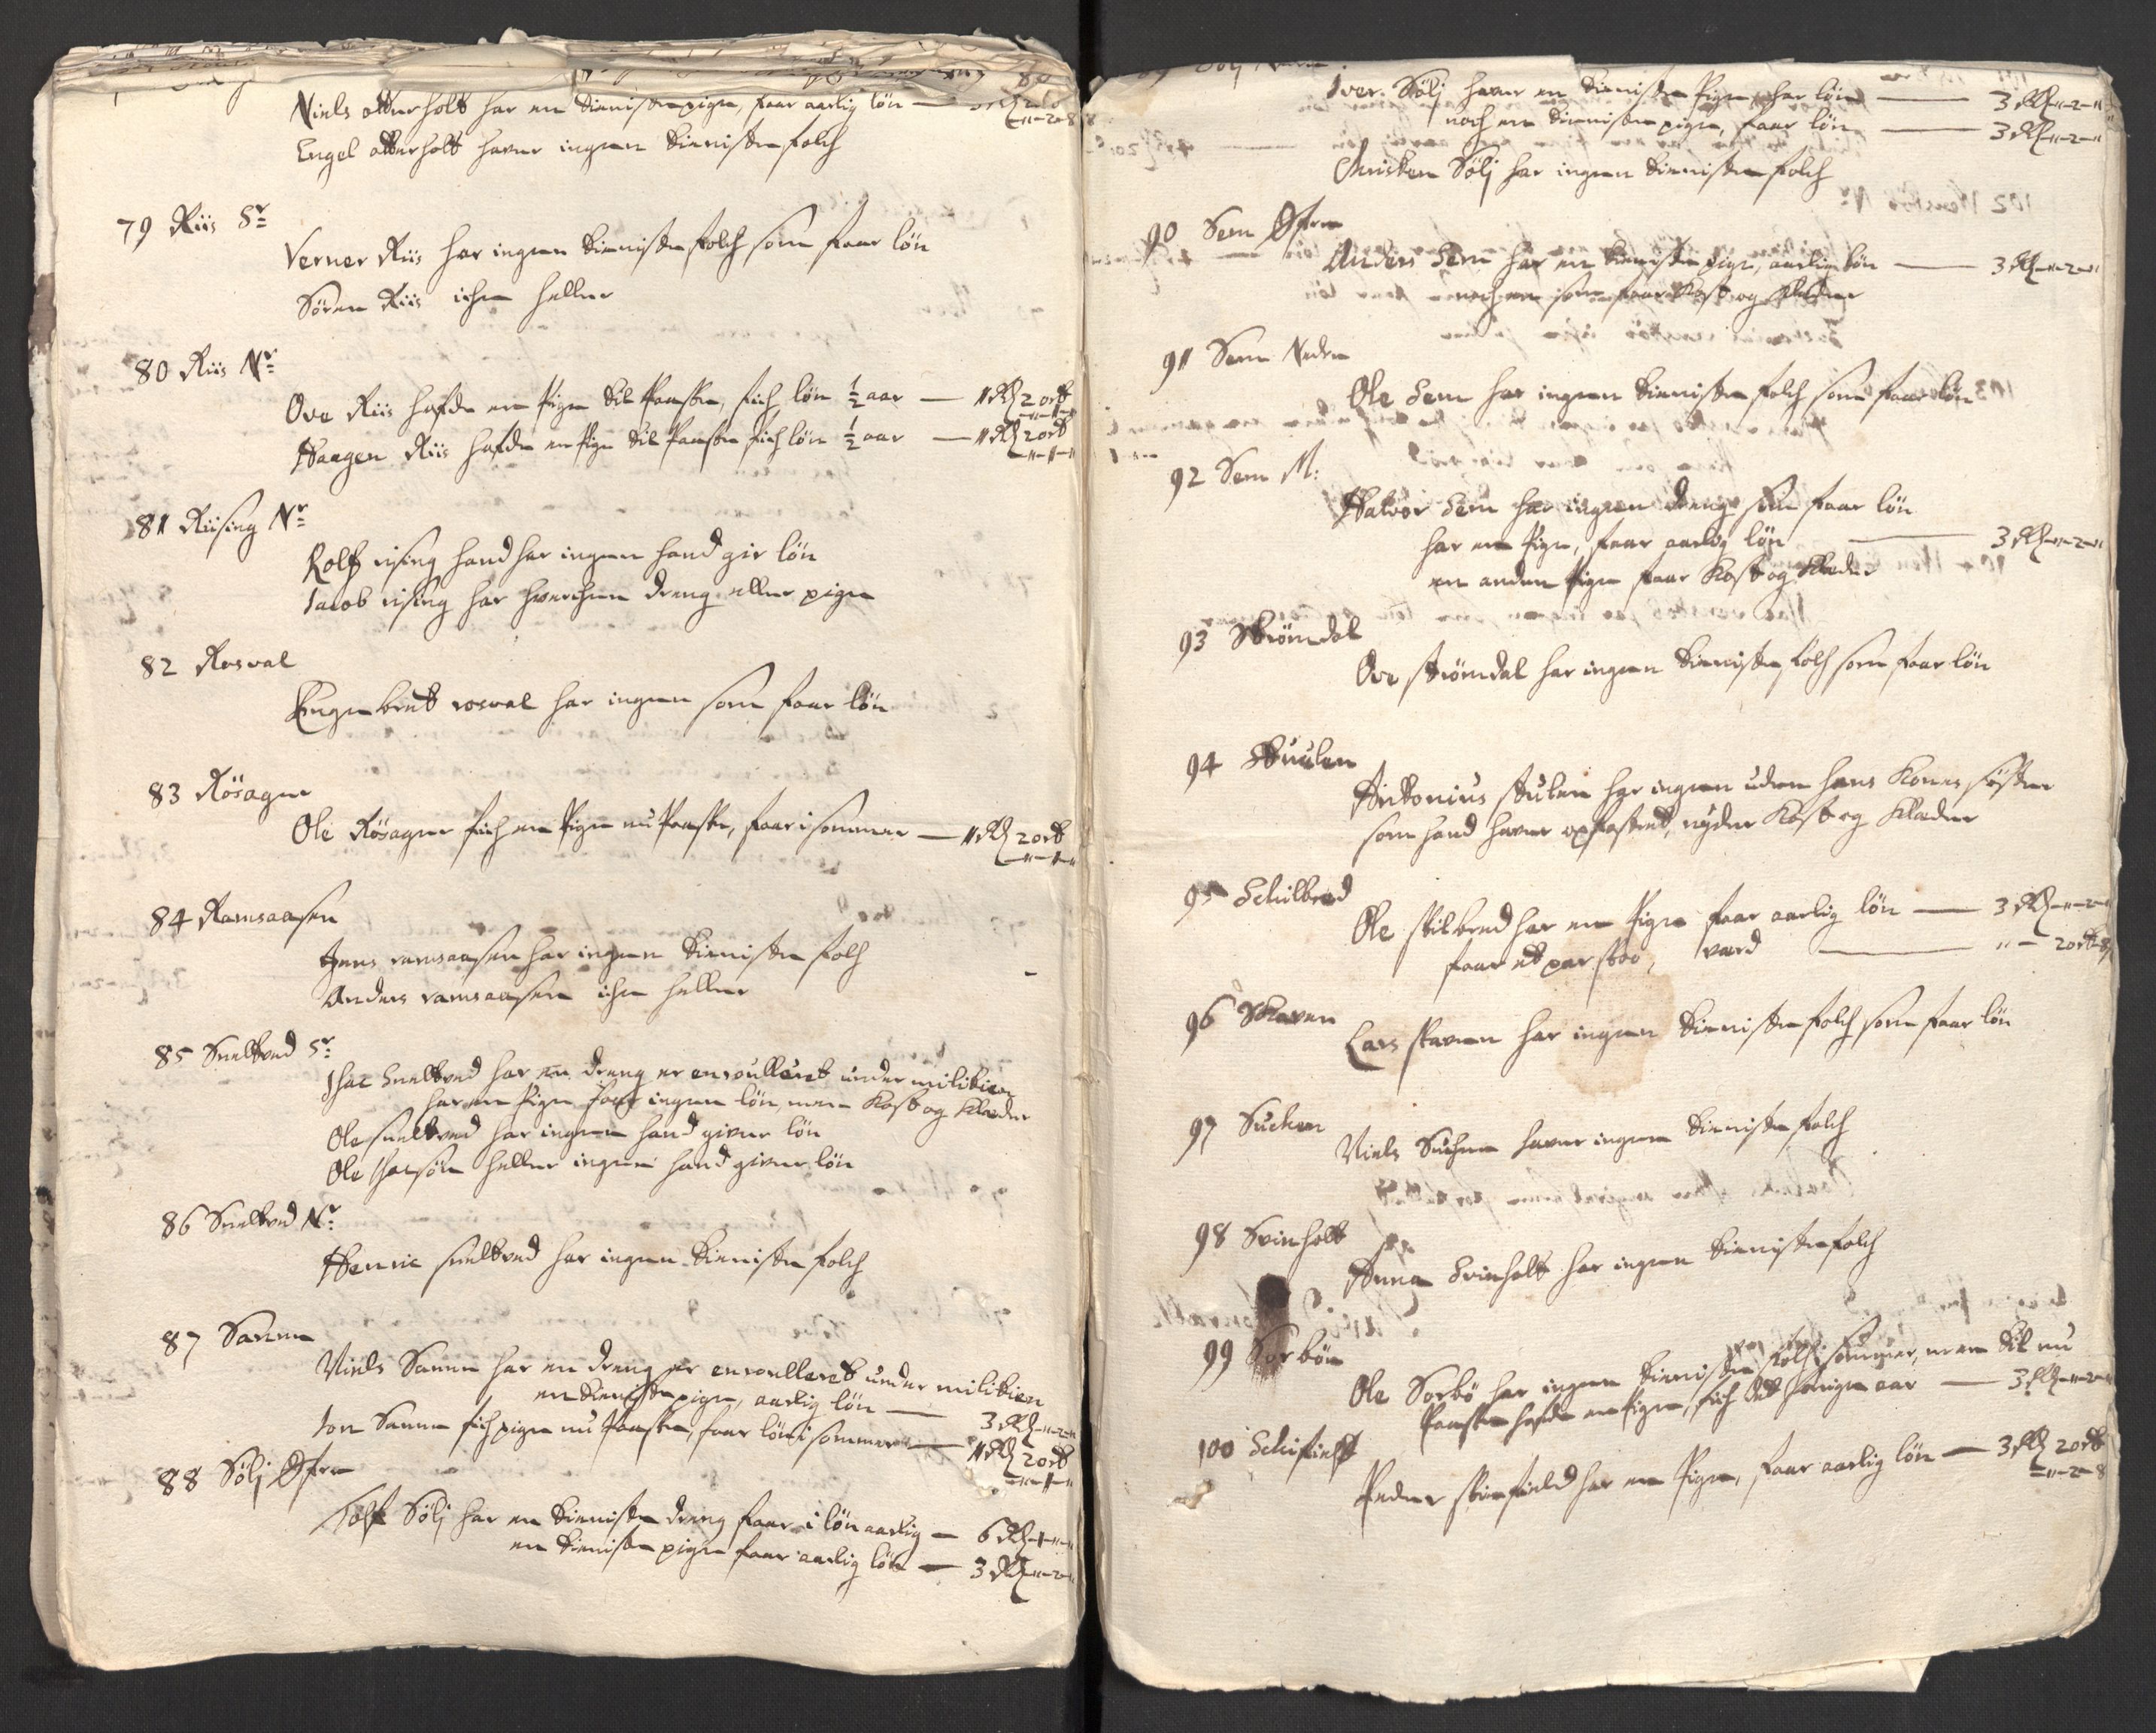 Niels otterholt har en tieniste pige, faar aarlig løn —
Engel otterholt hauer ingen tieniste folch
79 Riis Sr
Verner Riis har ingen tieniste folch som faar løn
Sören Riis iche heller
80 Riis Nr
Ove Riis hafde en Pige til Paaske, fich løn ½ aar — 1 Rd 2 ort
Haagen Riis hafde en Pige til Paaske fich løn ½ aar — 1 Rd 2 ort
81 Riising Nr
Rolf rising hand har ingen hand gir løn
Jacob rising har huerchen dreng eller pige
82 Rosval
Engebret rosval har ingen som faar løn
83 Rösager
Ole Rösager fich en Pige nu Paaske, faar i sommer — 1 Rd 2 ort
84 Ramsaasen
Jens ramsaasen har ingen tieniste folch
Anders ramsaasen iche heller
85 Sneltved Sr
Isac Sneltved har en dreng er enroulleret under militien
har en Pige faar ingen løn, men Kost og Klæder
Ole sneltved har ingen hand giver løn
Ole Isacsön heller ingen hand giver løn
86 Sneltved Nr
Henric sneltved har ingen tieniste folch
87 Sanne
Niels Sanne har en dreng er enroulleret under militien
en tieniste pige, aarlig løn — 3 Rd - " - 2 - "
Jon Sanne fich pige nu Paaske, faar løn i sommer — 1 Rd 2 ort
88 Sölj Øfre
Tolf Sölj har en tieniste dreng faar i løn aarlig — 6 Rd - 1 - "
en tieniste pige faar aarlig løn — 3 Rd - " - 2 - "
Iver Sölj haver en tieniste Pige, har løn — 3 Rd - " - 2 - "
noch en tieniste pige, faar løn — 3 Rd - " - 2 - "
Christen Sölj har ingen tieniste folch
90 Sem Øfre
Anders Sem har en tieniste pige, aarlig løn — 3 Rd - " - 2 - "
noch en som faar Kost og Klæder
91 Sem Nedre
Ole Sem har ingen tieniste folch som faar løn
92 Sem M:
Halvor Sem har ingen dreng som faar løn
har en Pige, faar aarlig løn — 3 Rd - " - 2 - "
en anden Pige faar Kost og Klæder
93 Strömdal
Ove strömdal har ingen tieniste folch som faar løn
94 Stuulen
Antonius stulen har ingen uden hans Kones söster
som hand haver opfostret, nyder Kost og Klæder
95 Schilbred
Ole skilbred har en Pige faar aarlig løn — 3 Rd - " - 2 - "
faar et par skoe, værd — " - 2 ort 8
96 Skaven
Lars skaven har ingen tieniste folch som faar løn
97 Suchen
Niels Suchen haver ingen tieniste folch
98 Svinholt
Anna Svinholt har ingen tieniste folch
99 Sorböe
Ole Sorbö har ingen tieniste folch i sommer, men til nu
Paaske hafde en Pige, fich det forige aar — 3 Rd - " - 2 - "
100 Schifield
Peder skifield har en Pige, faar aarlig løn — 3 Rd 2 ort
- " - 2 - 8